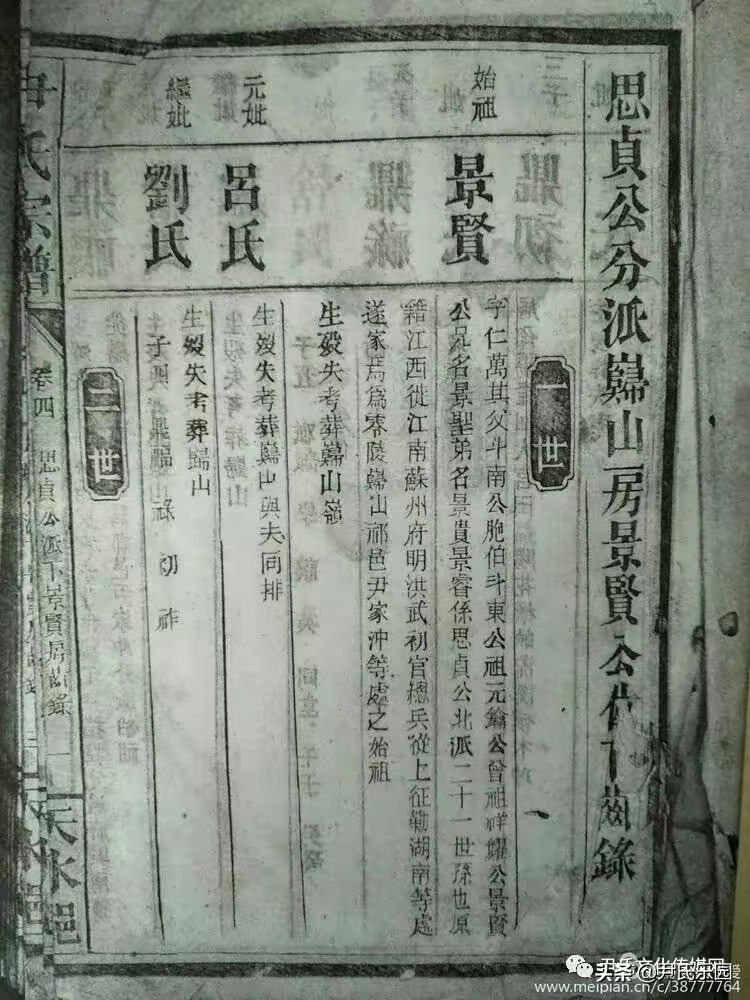 思貞公分派巋山房景賢公位下齒錄
一世
始祖
景賢
字仁萬其父斗南公胞伯斗東公祖元鑰公曾祖祥耀公景賢
公兄名景聖弟名景貴景睿係思貞公北派二十一世孫也原
籍江西從江南蘇州府明洪武初官總兵從上征勦湖南等處
遂家焉爲零陵巋山祁邑尹家沖等處之始祖
生歿失考葬巋山嶺
元妣
呂氏
生歿失考葬巋山與夫同排
繼妣
劉氏
生歿失考葬巋山
子
二世
尹氏宗譜
卷四
思貞公派下景賢房齒錄
一
天水邑
尹氏文化传媒网
头条 @尹氏乐园
www.meipian.cn/c/38777764